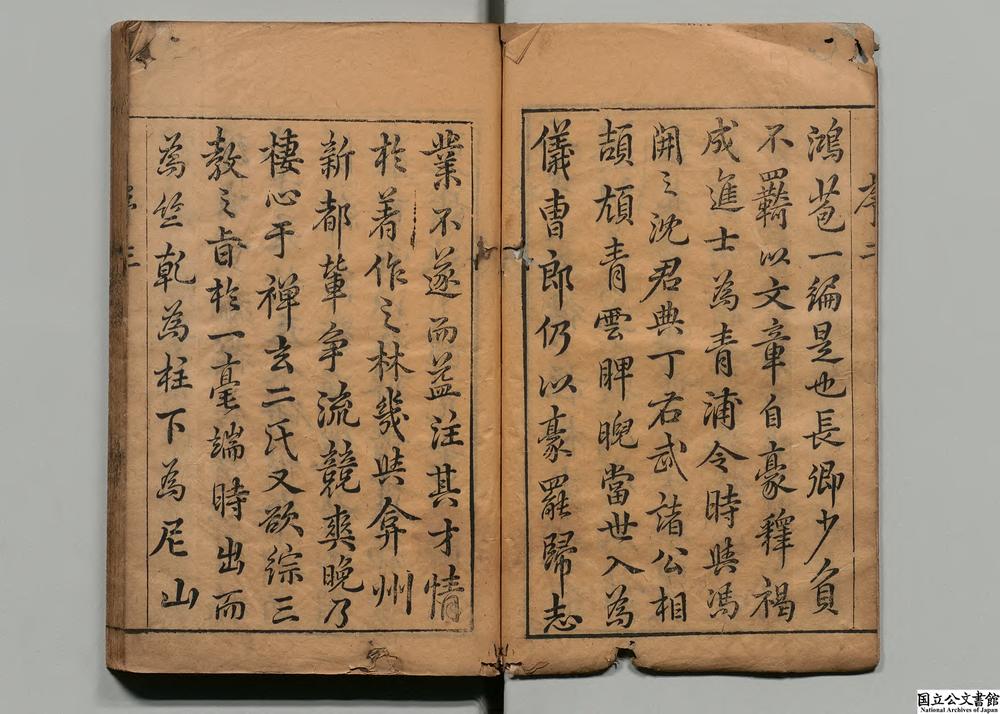 鴻苞一編是也長卿少負
不羈以文章自豪釋褐
成進士為青浦令時與馮
開之沈君典丁右武諸公相
頡頏青雲睥睨當世入為
儀曹郎仍以豪罷歸志
業不遂而益注其才情
於著作之林幾與弇州
新都輩爭流競爽晚乃
棲心于禪玄二氏又欲綜三
教之旨於一毫端時出而
為竺乾為柱下為尼山
序二
国立公文書館
National Archives of Japan